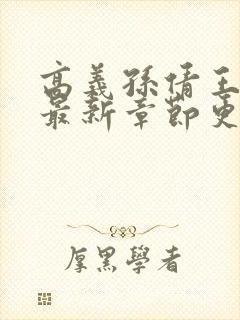 高義孫倩王
最新章節更
厚黑學者